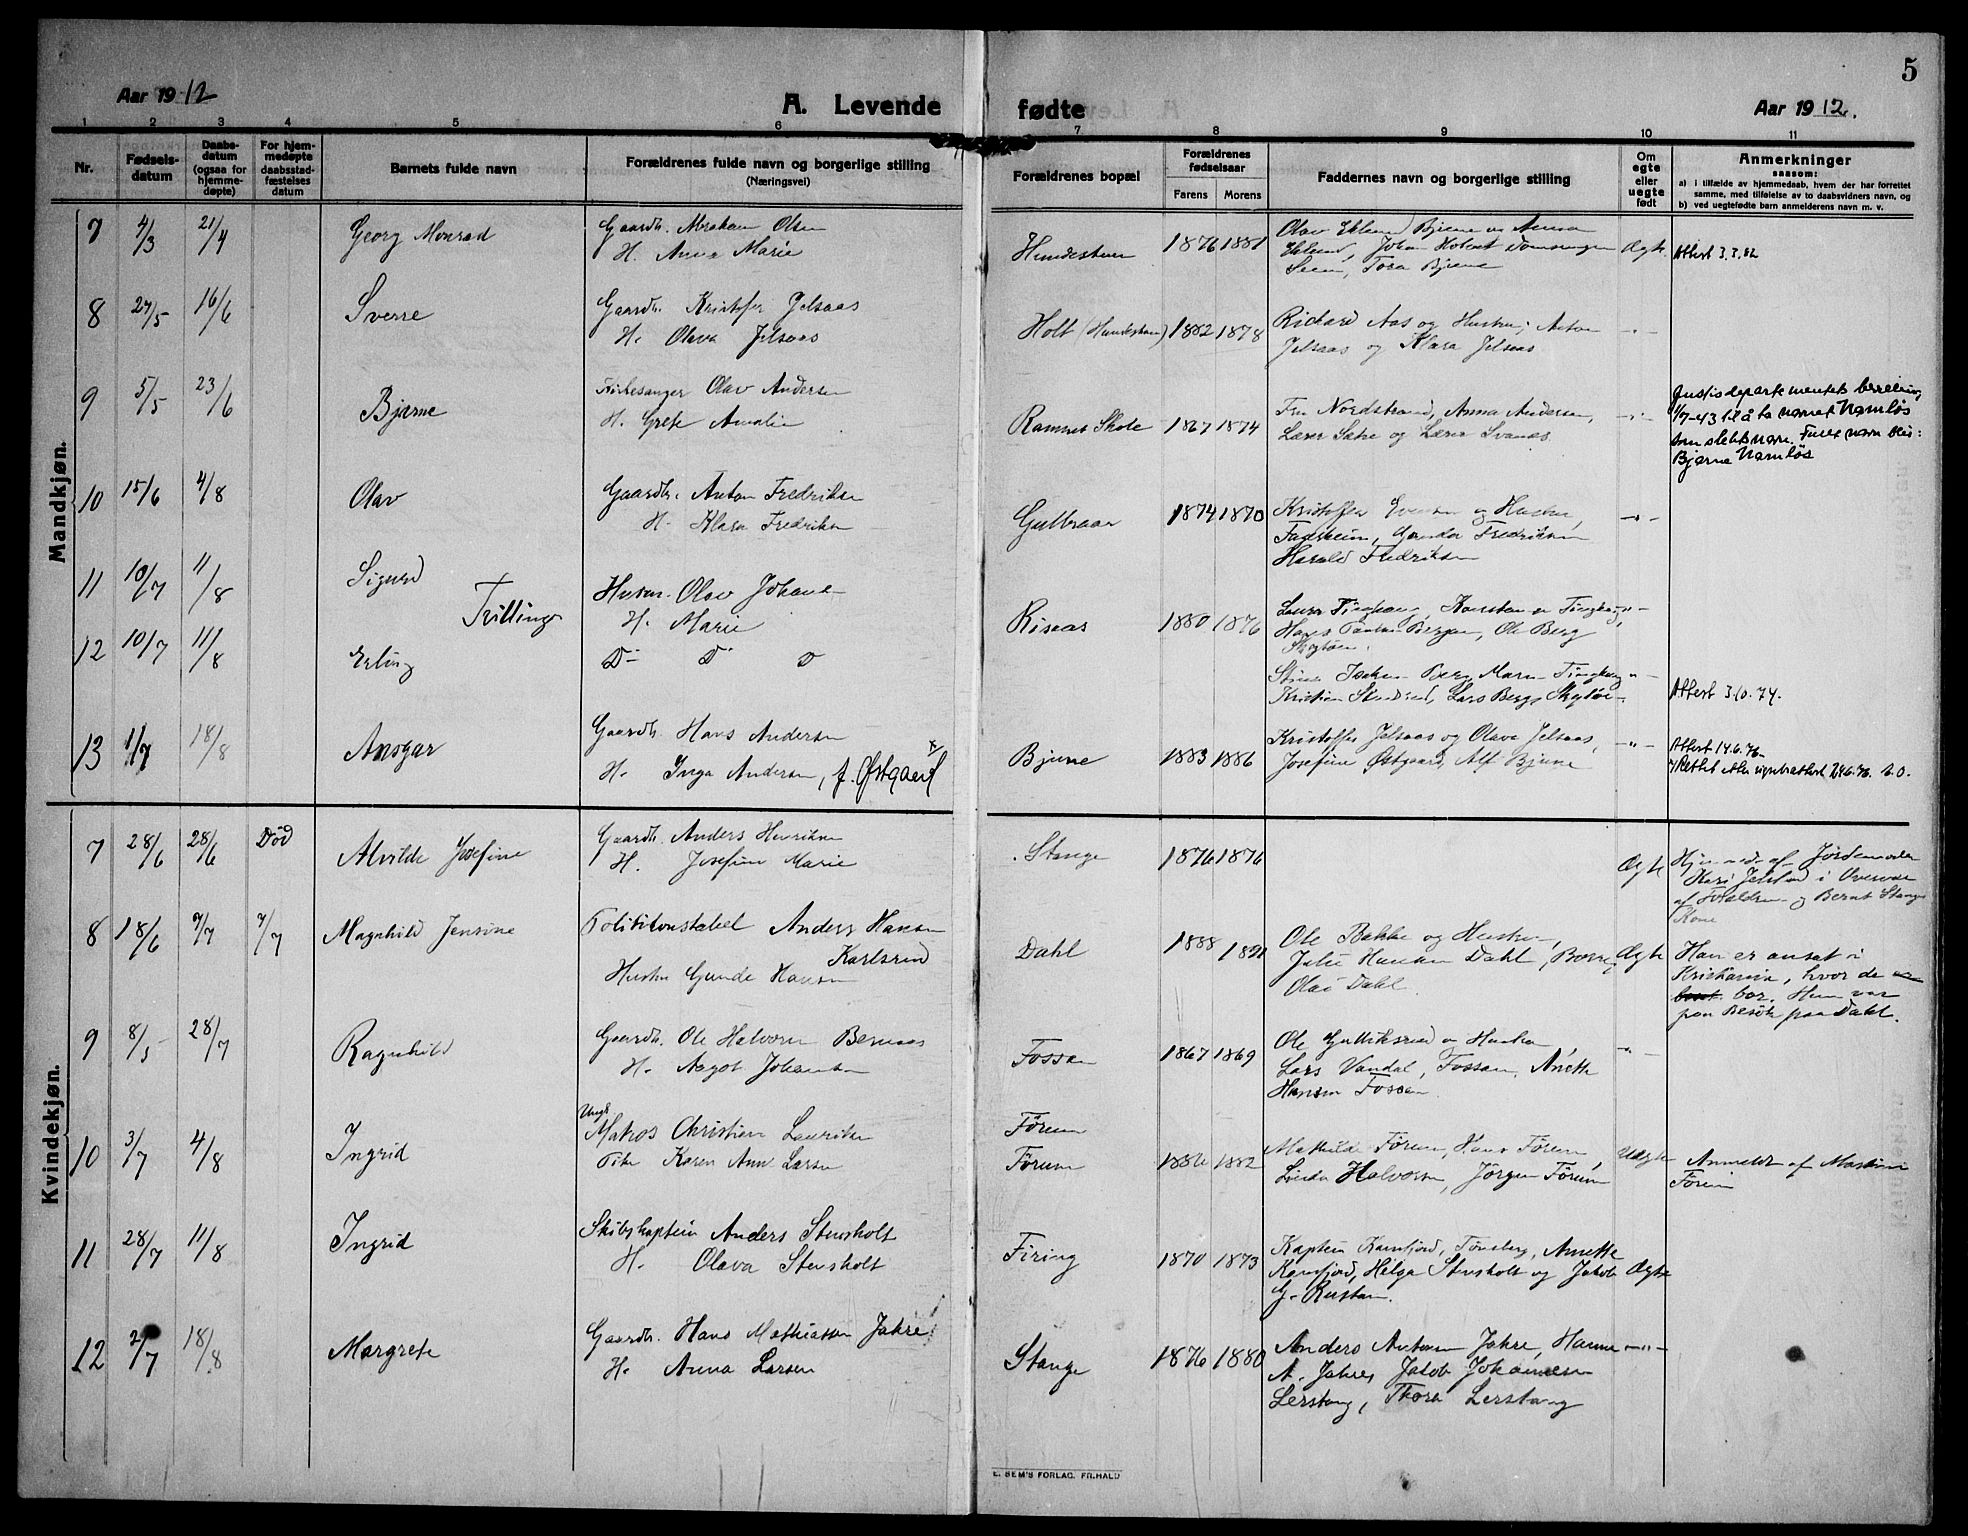 5
Aar 1912
A. Levende
fødte
Aar 1912.
1 2 3 4 5 6 7 8 9 10 11
Nr.
Fødsels-
datum
Daabs-
datum
(ogsaa for
hjemme-
døpte)
For hjem-
medøpte
daabsstad-
fæstelses
datum
Barnets fulde navn
Forældrenes fulde navn og borgerlige stilling
(Næringsvei)
Forældrenes bopæl
Forældrenes
fødselsaar
Farens Morens
Faddernes navn og borgerlige stilling
Om
egte
eller
uegte
født
Anmerkninger
saasom:
a) i tilfælde av hjemmedaab, hvem der har forrettet
samme, med tilføielse av to daabsvidners navn, og
b) ved uegtefødte barn anmelderens navn m. v.
Mandkjøn.
7 4/3 21/4 Georg Monrad Gaardb. Abraham Olsen
H. Anna Marie
Hundestuen 1876 1881 Olav Eklund Bjune og Anna
Eklund, Johan Holert
Seem, Tora Bjune
Ægte Attest 3.3.82
8 27/5 16/6 Sverre Gaardb. Kristofer Jelsaas
H. Olava Jelsaas
Holt (Hundestuen) 1882 1878 Rickard Aas og Hustru, Anton
Jelsaas og Klara Jelsaas
-"-
9 5/5 23/6 Bjarne Kirkesanger Olav Andersen
H. Grete Amalie
Ramnes Skole 1867 1874 Fru Nordstrand, Anna Andersen,
Lærer Sætre og Lærer Svanæs.
-"-
Justisdepartementets bevilling
1/7-43 til å ta navnet Namløs
som slektsnavn. Fullt navn blir:
Bjarne Namløs
10 15/6 4/8 Olav Gaardb. Anton Fredriksen
H. Klara Fredriksen
Gulbraar 1874 1870 Kristoffer Evensen og Hustru,
Fagerheim, Gunda Fredriksen
Harald Fredriksen
-"-
11 10/7 11/8 Sigurd
Tvillinger
Husm. Olav Johans
H. Marie
Risaas 1880 1876
Hans Paulsen Bergan, Ole Berg
12 10/7 11/8 Erling D- D D
Lars Berg, Skogtøe
Attest 3.10.74.
13 1/7 18/8 Ansgar Gaardb. Hans Andersen
H. Inga Andersen, f. Østgaard x
Bjune 1883 1886 Kristoffer Jelsaas og Olava Jelsaas,
Josefine Østgaard, Alf Bjune
-"-
Attest 14.6.76-
x) Rettet etter vigselsattest 24.6.76. E.O.
Kvindekjøn.
7 28/6 28/6 Død Alvilde Josefine Gaardb. Anders Henriksen
H. Josefine Marie
Stange 1876 1876 Ægte
Hjemmed. af Jordemoder
Kari Jelstad i Overvær
af Forældrene og Bernt Stanges
Kone
8 18/6 7/7 7/7 Magnhild Jensine Politikonstabel Anders Hansen
Karlsrud
Hustru Gunda Hansen
Dahl 1888 1891 Ole Bakke og Hustru,
Julie Hansen Dahl,
Olav Dahl.
Ægte
Han er ansat i
Kristiania, hvor de
bor. Hun var
paa Besøk paa Dahl.
9 8/5 28/7 Ragnhild Gaardb. Ole Halvorsen Bernaas
H. Aagot Johansen
Fossan 1867 1869 Ole Gulliksrud og Hustru,
Lars Vandal, Fossan, Anette
Hansen Fossan
-"-
10 3/7 4/8 Ingrid
Ungk.
Matros Christian Lauritsen
Pike Karen Ann Larsen
Förum
Förum
1886 1882 Mathilde Förum, Hans Förum,
Linda Halvorsen, Jörgen Förum
Uægte
Anmeldt af Mathias
Förum
11 28/7 11/8 Ingrid Skibskaptein Anders Stensholt
H. Olava Stensholt
Firing 1870 1873 Kaptein Kamfjord, Tønsberg, Anette
Kamfjord, Helga Stensholt og Jakob
G. Rustan.
Ægte
12 2/7 18/8 Margrete Gaardb. Hans Mathiassen Jahre
H. Anna Larsen
Stange 1876 1880 Anders Antonsen Jahre, Hanna
A. Jahre, Jakob Johannesen
Lerstang, Thora Lerstang
-"-
E. SEM'S FORLAG. FR.HALD